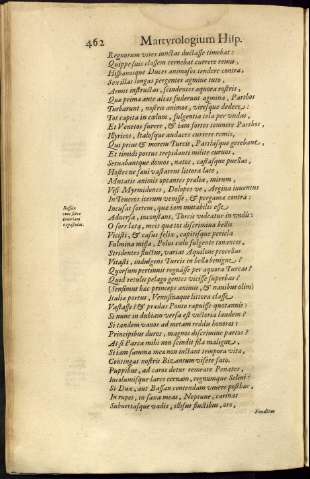 462 Martyrologium Hisp.
Regnorum vires iunctas ductasse timebat:
Quippe suis classem cernebat currere remis,
Hispaniæque Duces animosos tendere contra,
Seu illas longas pergentes agmine tuto,
Armis instructas, scindentes æquora rostris,
Qua prima ante alias fuderunt agmina, Parthos
Turbarunt, nostris animos, viresque dedere:
Tot capita in cælum, fulgentia tela per undas,
Et Venetos furere, & iam fortes irruere Parthos
Illyricos, Italosque audaces currere remis,
Qui prius & morem Turcis, Parthosque
Et timidi portus trepidanti milite cursus,
Servabantque domos, natos, castasque puellas,
Hostes ne sævi vastarent littora late,
Mutatis animis optantes prælia, mirum,
Visi Myrmidones, Dolopes ve, Argiva iuventus
In Teucros iterum venisse, & pergama contra:
Incusas sortem, quæ iam mutabilis esse
Adversa, inconstans, Turcis videatur in undis:
O sors læta, meos quæ tot discrimina belli
Vicisti, & casus felix, capitisque pericla
Fulmina missa, Polus cælo fulgente tonantes,
Stridentes fluctus, variat Aquilone procellas
Vitasti, indulgens Turcis in bella benigne?
Quorsum pertinuit regnasse per æquora Turcas?
Quid vetulo pelago gentes vicisse superbas?
Venimus huc princeps animis, & navibus olim
Italia portus, Venetusque littora classe
Vastasti? & prædas Ponto rapuisse quotannis:
Si nunc in dubium versa est victoria laudem?
Si tandem vanus ad metam reddis honores?
Principibus duros, magnos discrimine partos?
At si Parca mihi non scindit fila maligna,
Si iam summa mea non instant tempora vitæ,
Contingat nostris Bizantum visere fatis
Puppibus, ad caros detur remeare Penates,
Incolumisque lares cernam, regnumque Selini?
Si Dux, aut Bassan contendam vincere postbac,
In rupes, in saxa meas, Neptune, carinas
Subvertasque vadis, illisus fluctibus, oro,
Funditus
Bassæ